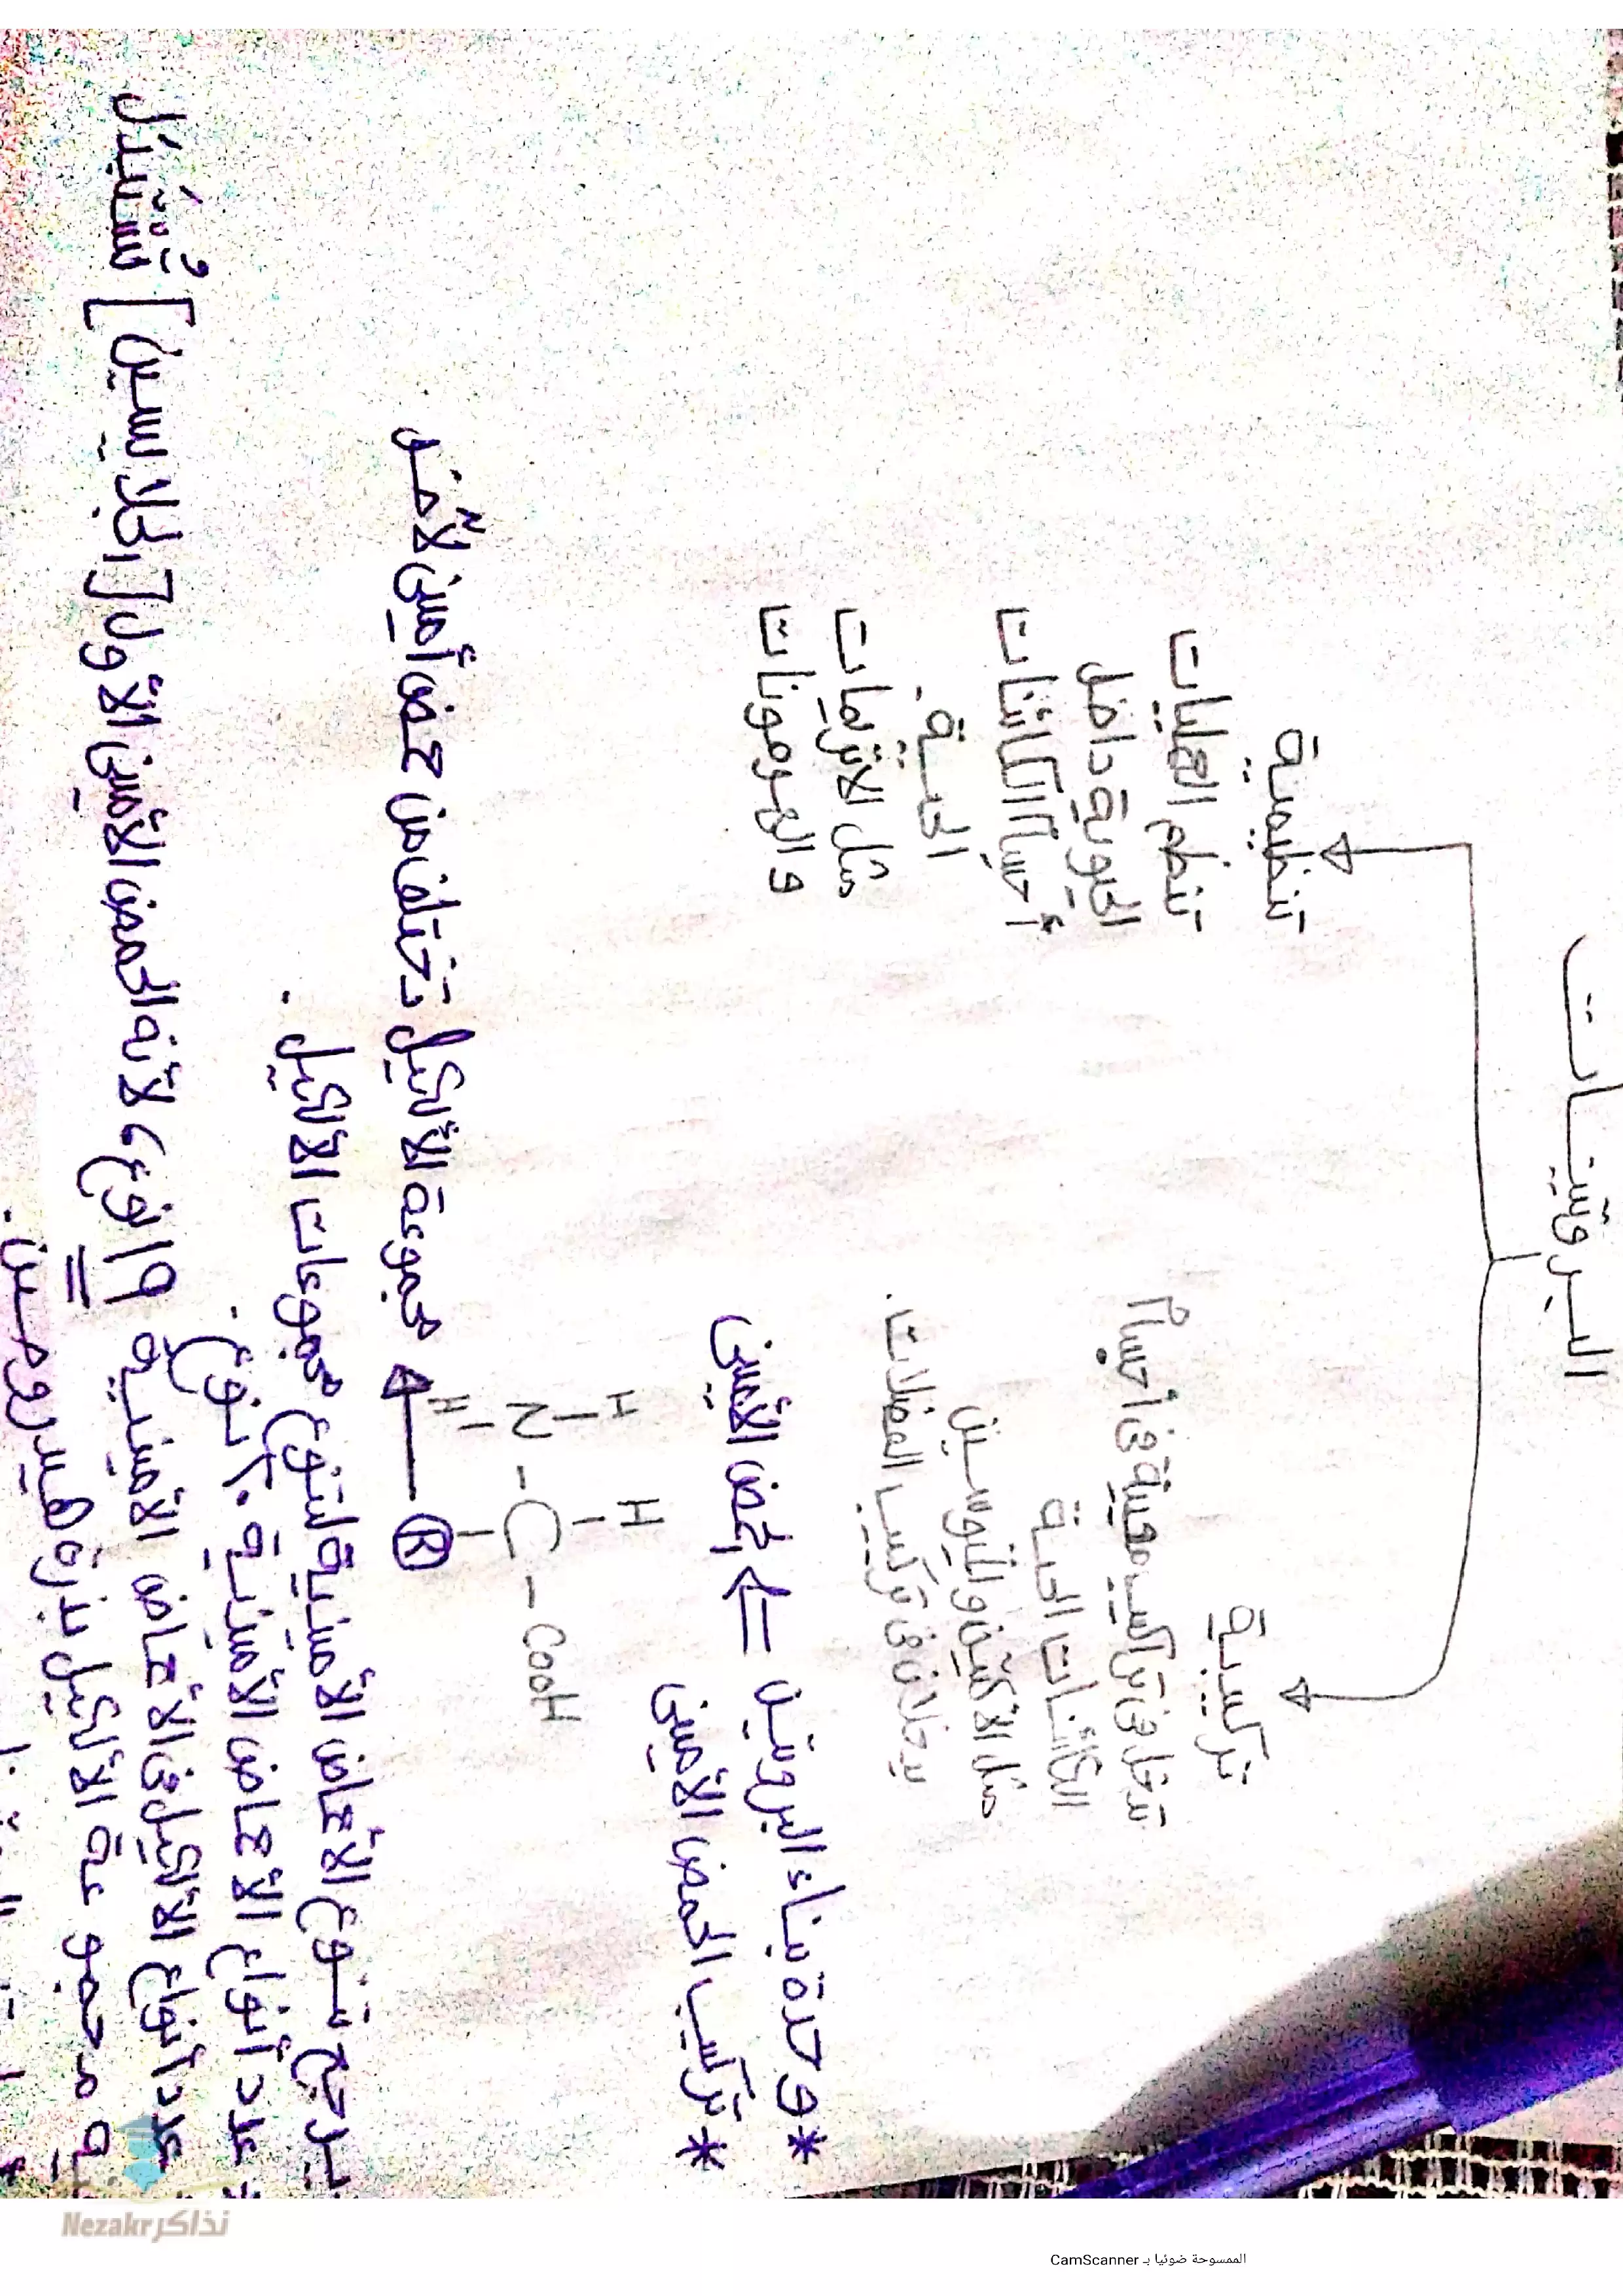 البروتينات
تركيبية
تدخل في تراكيب معينة في أجسام
الكائنات الحية
مثل الأكتين والميوسين
يدخلان في تركيب العضلات.
تنظيمية
تنظم العمليات
الحيوية داخل
أجسام الكائنات
الحية.
مثل الانزيمات
والهرمونات
* وحدة بناء البروتين ⇐ الحمض الأميني
* تركيب الحمض الأميني
H H
N - C - CooH
H R
مجموعة الألكيل تختلف من حمض أميني لآخر
يرجع تنوع الأحماض الأمينية لتنوع مجموعات الألكيل.
* عدد أنواع الأحماض الأمينية ٢٠ نوع.
عدد أنواع الألكيل في الأحماض الأمينية ١٩ نوع، لأنه الحمض الأميني الأول [الجلايسين] تُستبدل
فيه مجموعة الألكيل بذرة هيدروجين.
نذاكر Nezakr
الممسوحة ضوئيا بـ CamScanner